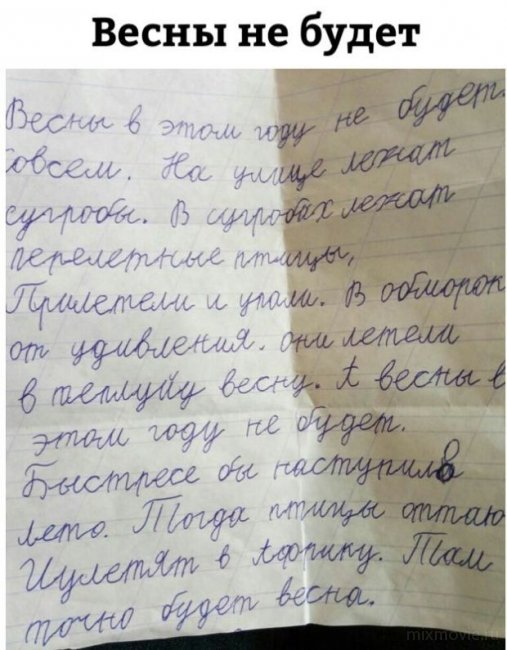 Весны не будет
Весны в этом году не будет.
Совсем. На улице лежат
сугробы. В сугробах лежат
перелетные птицы,
Прилетели и упали. В обморок
от удивления. они летели
в теплуйу весну. А весны в
этом году не будет.
Быстресе бы наступило
лето. Тогда птицы оттаю
И улетят в Африку. Там
точно будет весна.
mixmovie.ru